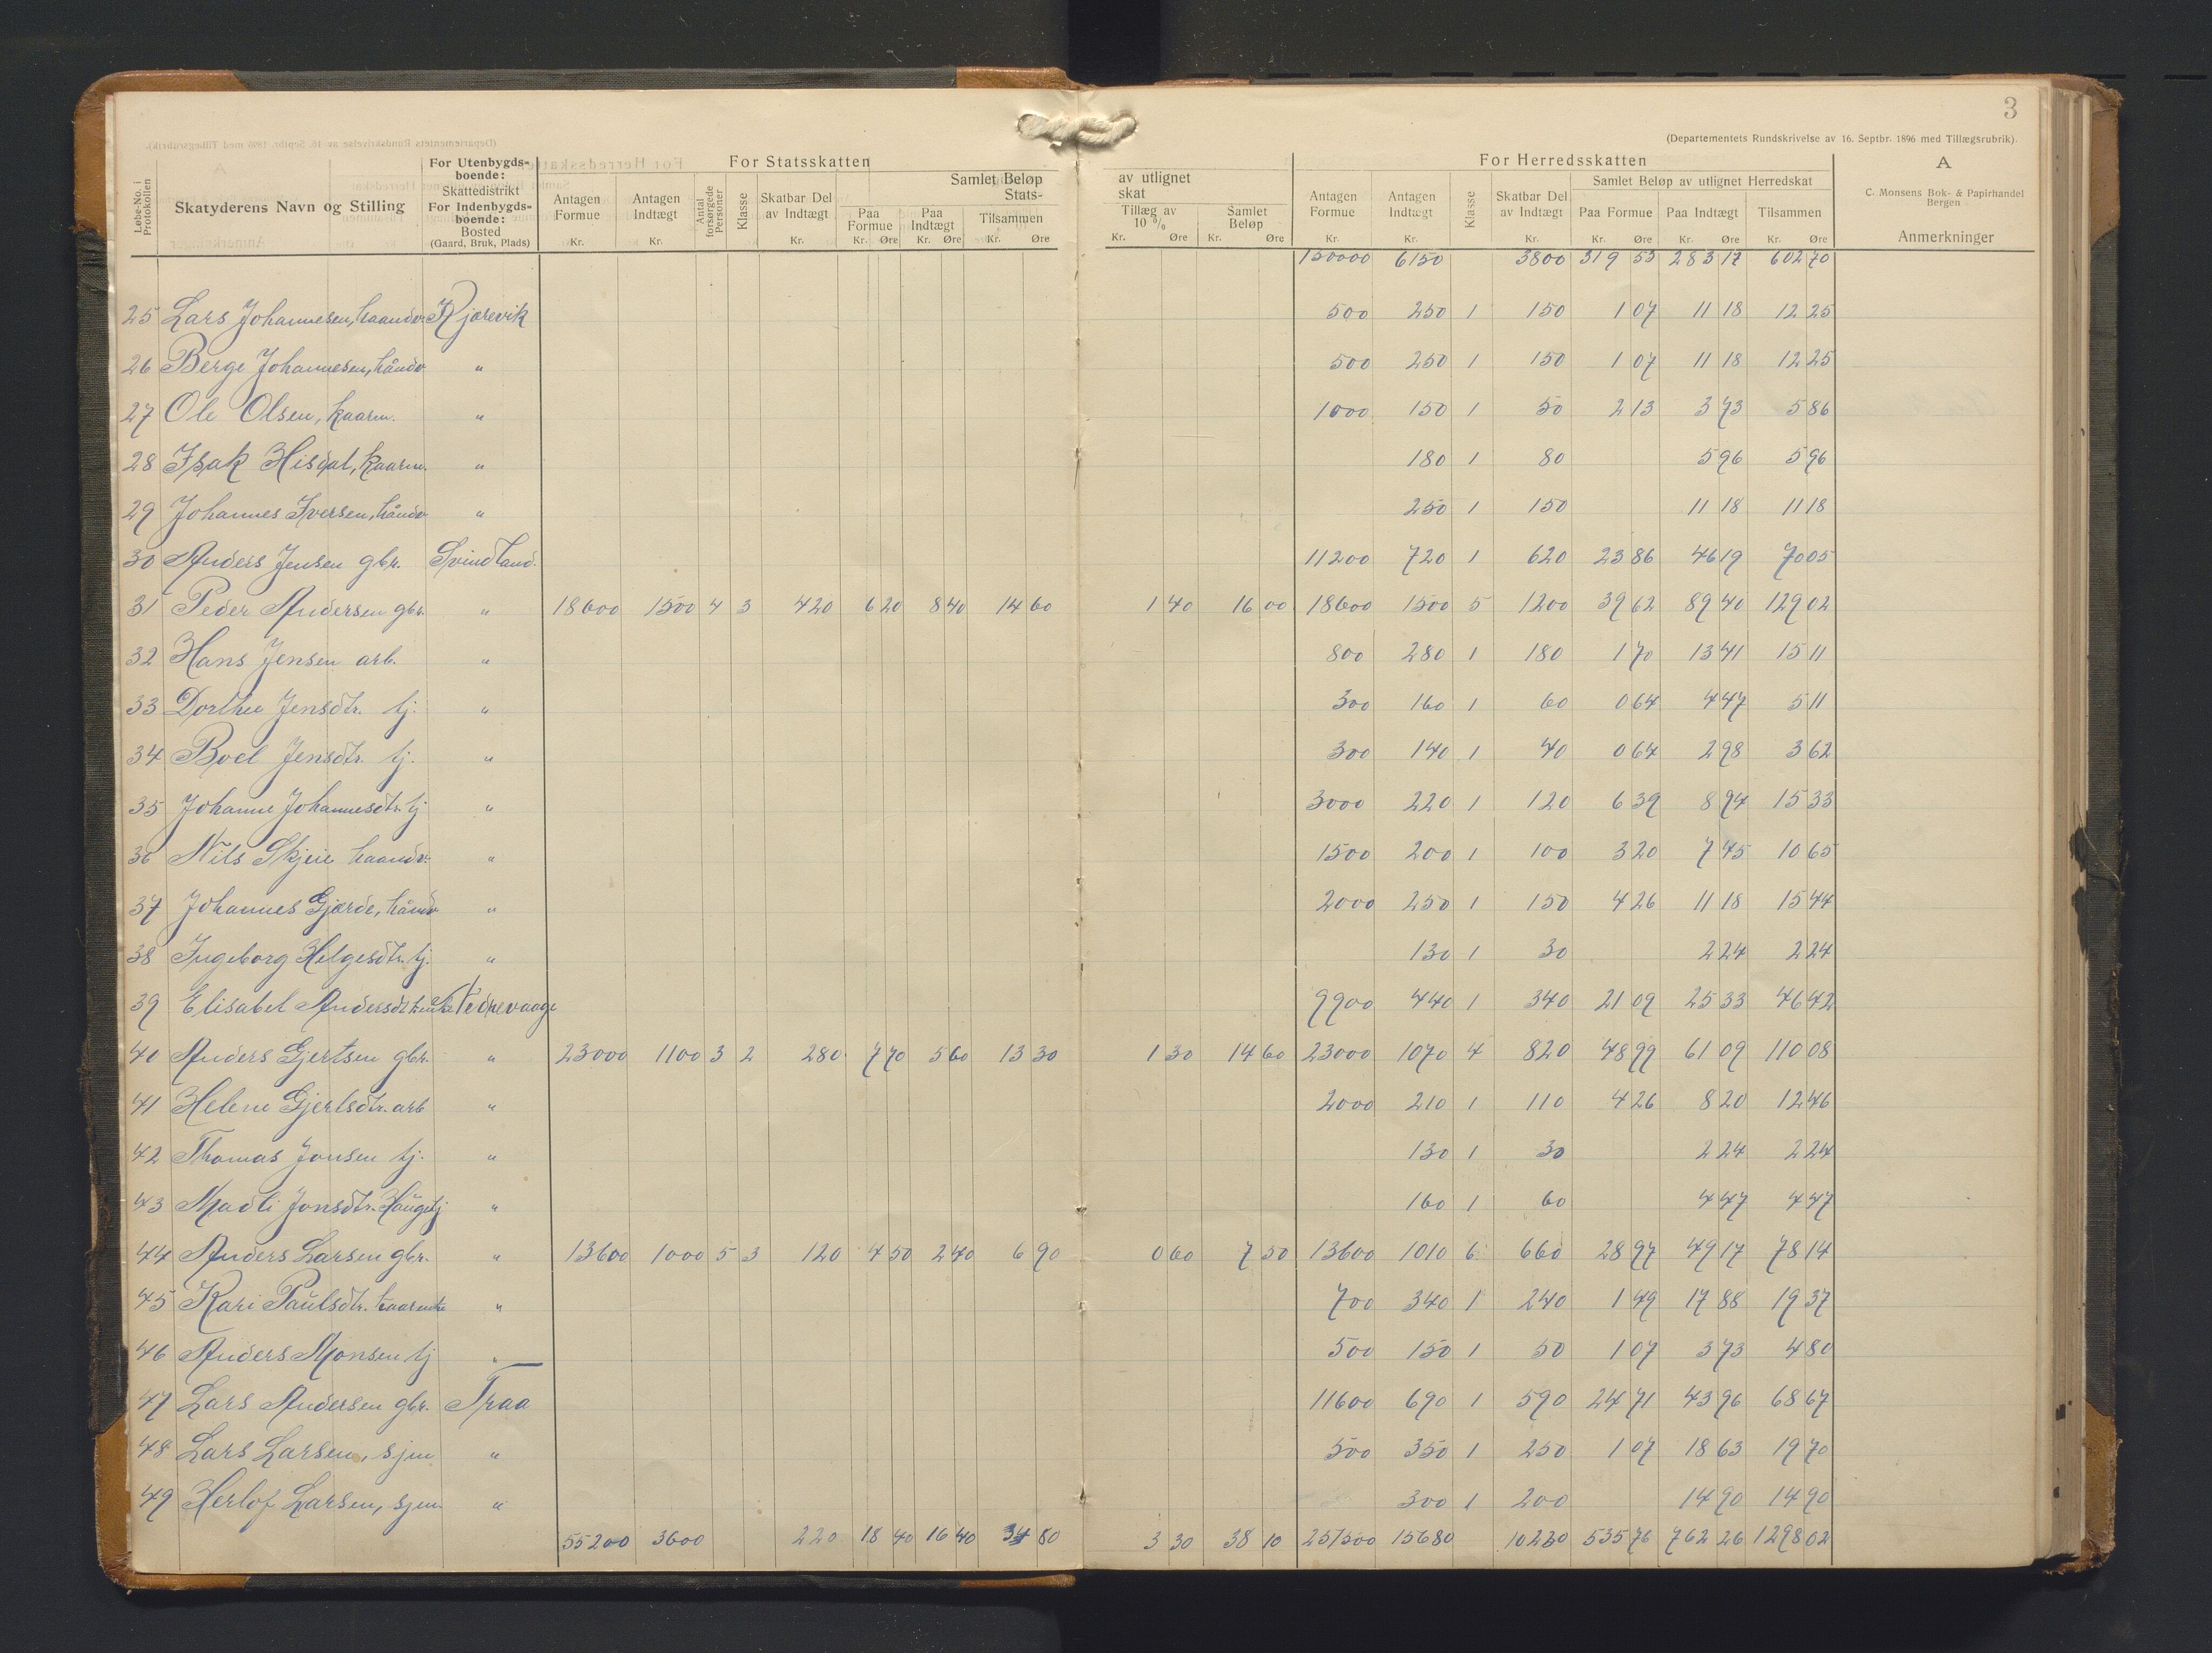 3
(Departementets Rundskrivelse av 16. Septbr. 1896 med Tillægsrubrik).
Løbe-No. i Protokollen
Skatyderens Navn og Stilling
For Utenbygdsboende: Skattedistrikt For Indenbygdsboende: Bosted (Gaard, Bruk, Plads)
For Statsskatten
Antagen Formue Kr.
Antagen Indtægt Kr.
Antal forsørgede Personer
Klasse
Skatbar Del av Indtægt Kr.
Samlet Beløp av utlignet Stats-skat
Paa Formue Kr. Øre
Paa Indtægt Kr. Øre
Tilsammen Kr. Øre
Tillæg av 10 % Kr. Øre
Samlet Beløp Kr. Øre
For Herredsskatten
Antagen Formue Kr.
Antagen Indtægt Kr.
Klasse
Skatbar Del av Indtægt Kr.
Samlet Beløp av utlignet Herredskat
Paa Formue Kr. Øre
Paa Indtægt Kr. Øre
Tilsammen Kr. Øre
A
C. Monsens Bok- & Papirhandel
Bergen
Anmerkninger
150000 6150 3800 319 53 283 17 602 70
25 Lars Johannesen, haandv. Kjærevik 500 250 1 150 1 07 11 18 12 25
26 Berge Johannesen, håndv " 500 250 1 150 1 07 11 18 12 25
27 Ole Olsen, kaarm. " 1000 150 1 50 2 13 3 73 5 86
28 Isak Hisdal, kaarm. " 180 1 80 5 96 5 96
29 Johannes Iversen, håndv " 250 1 150 11 18 11 18
30 Anders Jensen gbr. Svindland. 11200 720 1 620 23 86 46 19 70 05
31 Peder Andersen gbr. " 18600 1500 4 3 420 6 20 8 40 14 60 1 40 16 00 18600 1500 5 1200 39 62 89 40 129 02
32 Hans Jensen arb. " 800 280 1 180 1 70 13 41 15 11
33 Dorthea Jensdtr. tj. " 300 160 1 60 0 64 4 47 5 11
34 Boel Jensdtr. tj. " 300 140 1 40 0 64 2 98 3 62
35 Johanne Johannesdtr. tj " 3000 220 1 120 6 39 8 94 15 33
36 Nils Skjeie haandv. " 1500 200 1 100 3 20 7 45 10 65
37 Johannes Gjærde, håndv " 2000 250 1 150 4 26 11 18 15 44
38 Ingeborg Helgesdtr. tj. " 130 1 30 2 24 2 24
39 Elisabet Andersdt enke Nedrevaage 9900 440 1 340 21 09 25 33 46 42
40 Anders Gjertsen gbr. " 23000 1100 3 2 280 7 70 5 60 13 30 1 30 14 60 23000 1070 4 820 48 99 61 09 110 08
41 Helene Gjertsdtr. arb " 2000 210 1 110 4 26 8 20 12 46
42 Thomas Jonsen tj. " 130 1 30 2 24 2 24
43 Madli Jonsdtr. Hauge tj " 160 1 60 4 47 4 47
44 Anders Larsen gbr. " 13600 1000 5 3 120 4 50 2 40 6 90 0 60 7 50 13600 1010 6 660 28 97 49 17 78 14
45 Kari Paulsdtr. kaarenke " 700 340 1 240 1 49 17 88 19 37
46 Anders Monsen tj " 500 150 1 50 1 07 3 73 4 80
47 Lars Andersen gbr. Traa 11600 690 1 590 24 71 43 96 68 67
48 Lars Larsen, sjm " 500 350 1 250 1 07 18 63 19 70
49 Herlof Larsen, sjm. " 300 1 200 14 90 14 90
55200 3600 220 18 40 16 40 34 80 3 30 38 10 251500 15680 10230 535 76 762 26 1298 02